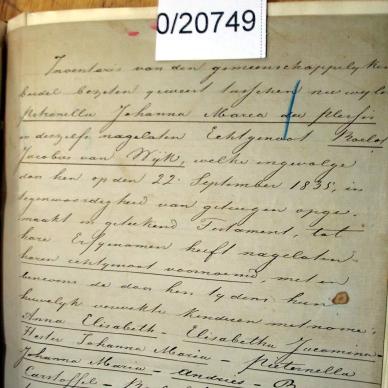 0/20749
Inventaris van den gemeenschappelyken
boedel bezeten geweest tusschen nu wylen
Petronella Johanna Maria du Plessis
en deszelfs nagelaten Echtgenoot Roelof
Jacobus van Wyk, welke ingevolge
door hen op den 22 September 1835, in
tegenwoordigheid van getuigen opge-
maakt en geteekend Testament, tot
hare Erfgenamen heeft nagelaten
haren echtgenoot voornoemd, met en
benevens de door hen tydens hun
huwelyk verwekte kinderen met name:
Anna Elisabeth - Elisabetha Jacomina
Hester Johanna Maria - Pieternella
Johanna Maria - Andries
Carstoffel